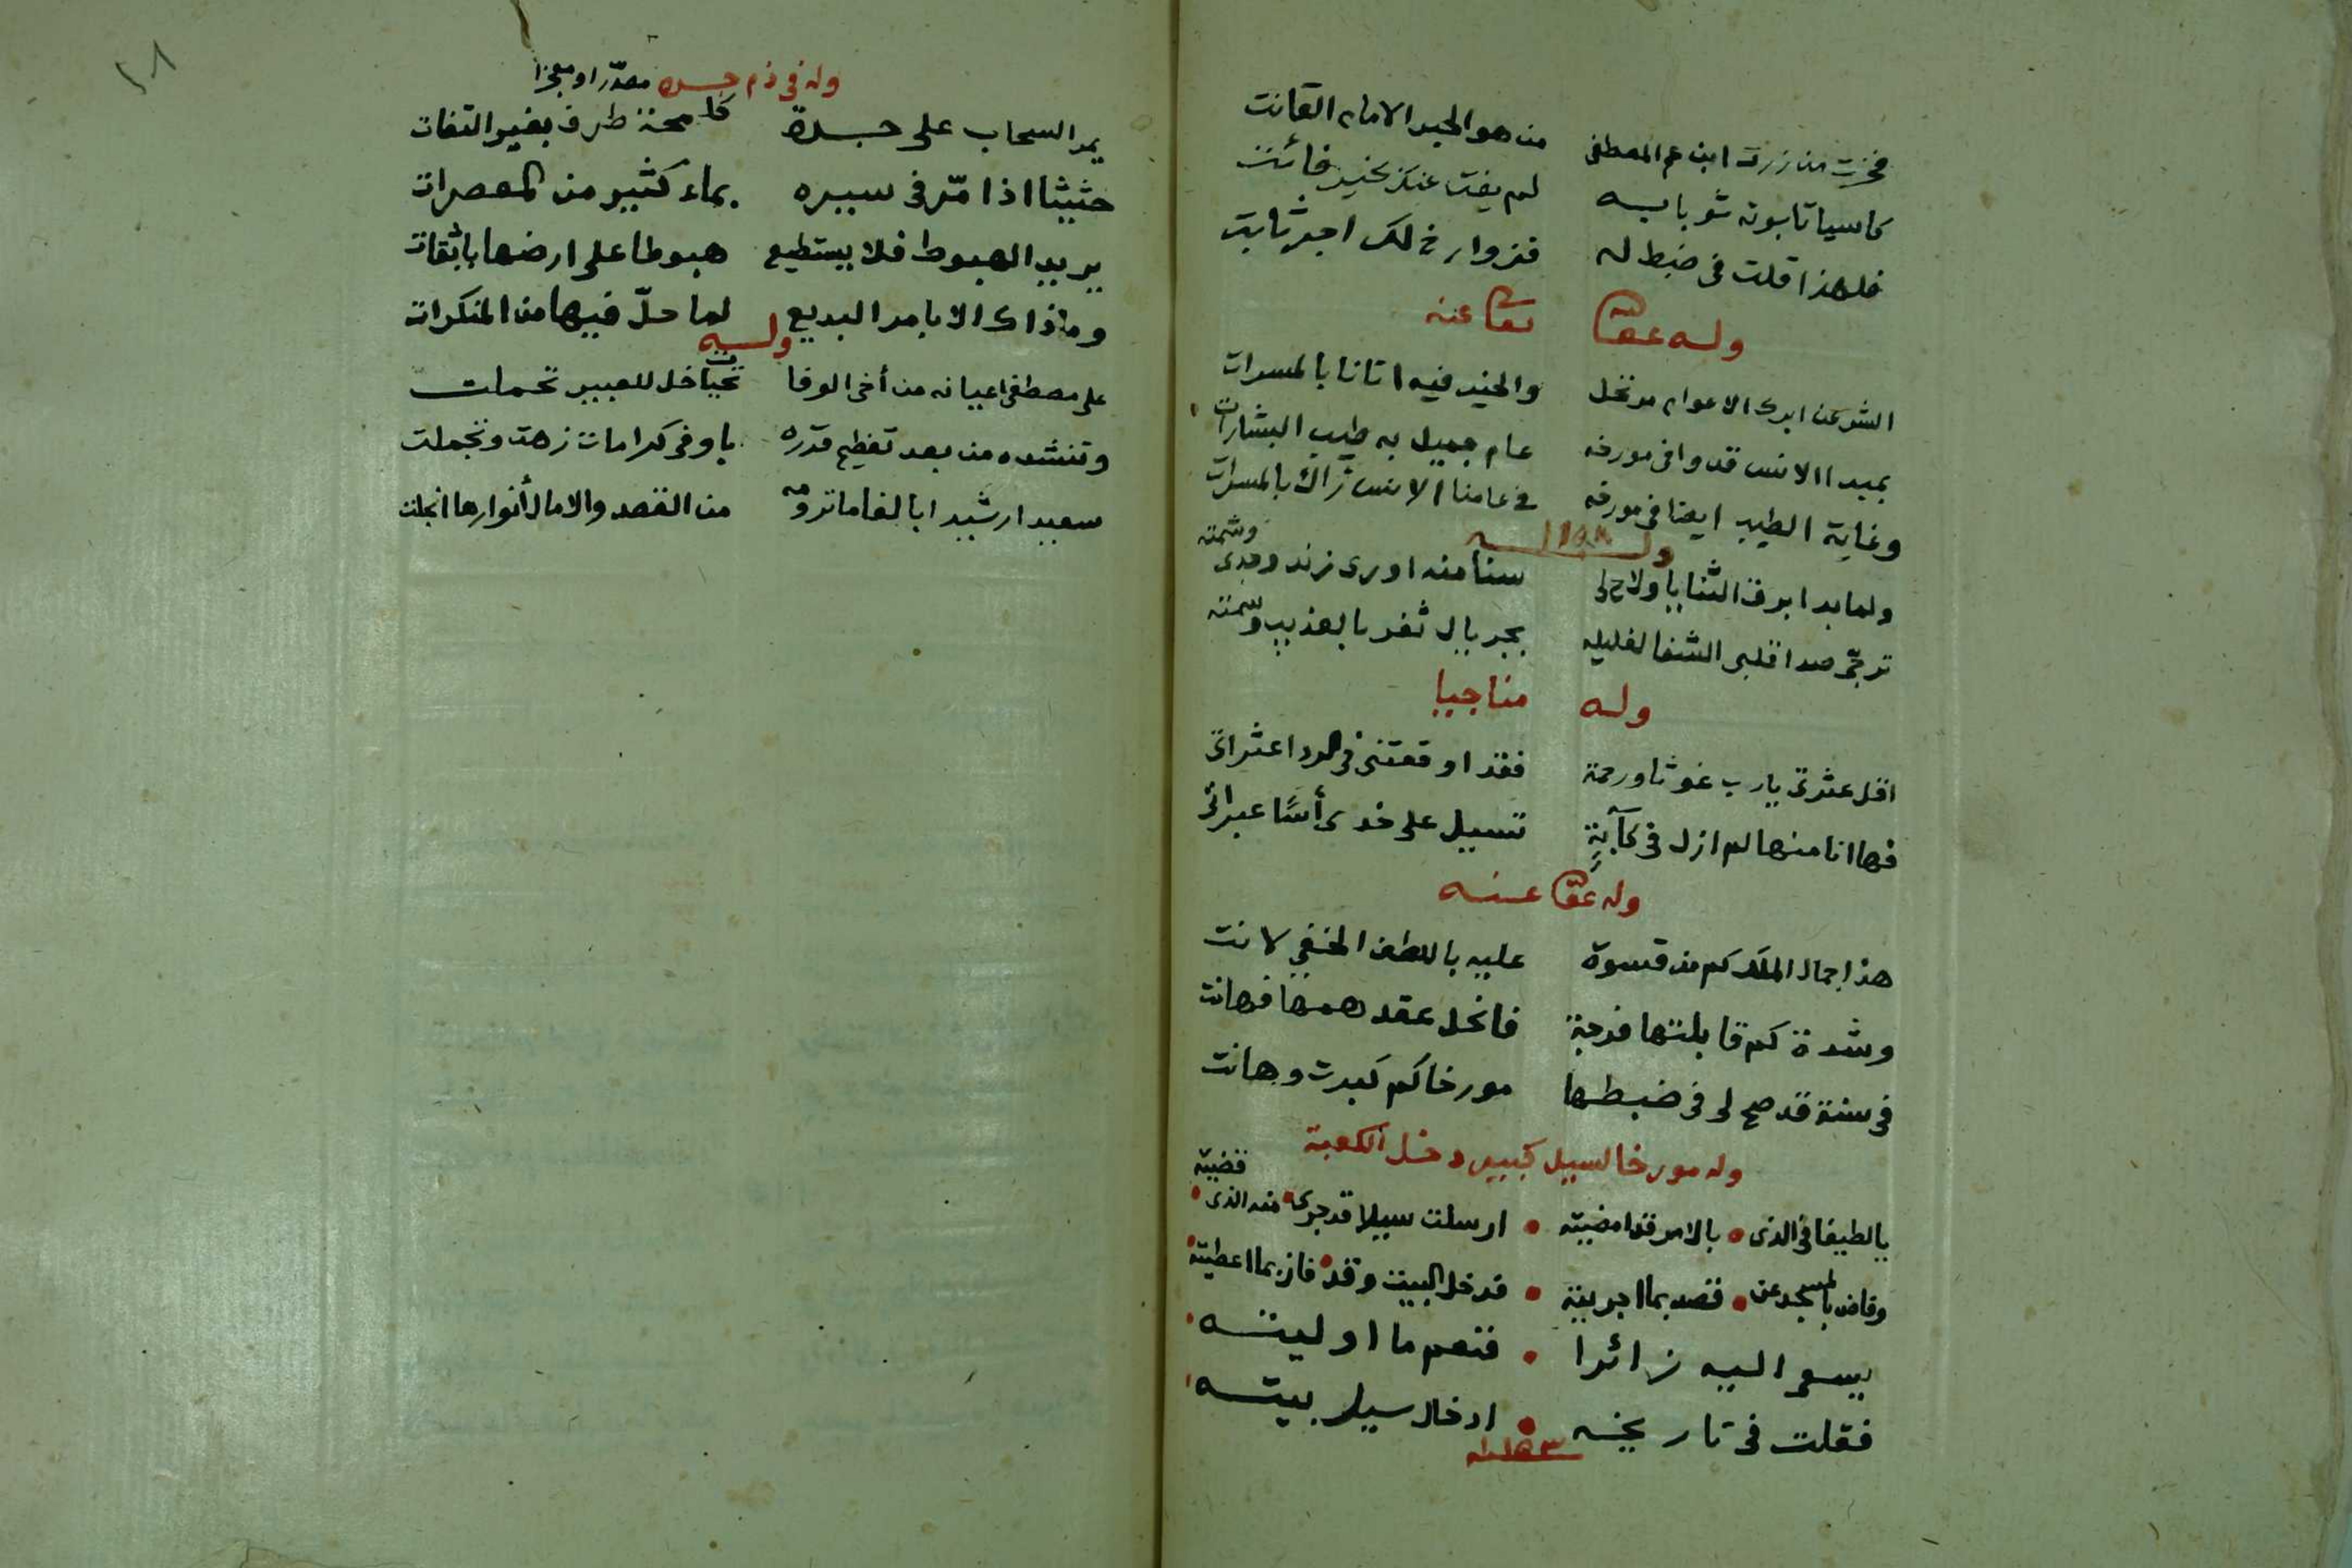 فخرت من زرت ابن عم المصطفى من هو الحبر الامام القانت
كاسيا تابوته ثوبا به لم يفت عنك بخير فائت
فلهذا قلت في ضبط له فزوارخ لك اجر ثابت
وله عفا تعا عنه
الشر عن ابرك الاعوام مرتحل والخير فيه اتانا بالمسرات
بمبدا الانس قد وافى مورخه عام جميل به طيب البشارات
وغاية الطيب ايضا في مورخه في عامنا الانس زاك بالمسرات
وله
ولما بدا برق الثنايا ولاح لي سنا منه اورى زند وجدى وشمته
ترجى صدا قلبي الشفا لغليله بجريال ثغر بالعذيب وسمته
وله مناجيا
اقل عثرتي يارب غوثا ورحمة فقد اوقعتني في الردا عثراتي
فها انا منها لم ازل في كآبة تسيل على خدى أسًا عبراتي
وله عفا عنه
هذا جمال الملك كم من قسوة عليه باللطف الخفي لانت
وشدة كم قابلتها فرجة فانحل عقد همها فهانت
في سنة قد صح لي في ضبطها مورخا كم كبرت وهانت
وله مورخا لسيل كبير دخل الكعبة
يالطيفا في الذى بالامر قد امضيته ارسلت سيلا قد جرى منه الذى قضيته
وفاض بالمسجد عن قصد بما اجريته قد خل البيت وقد فاز بما اعطيته
يسعى اليه زائرا فنعم ما اوليته
فقلت في تاريخه ادخال سيل بيته
١١٥٣
١٨
وله في ذم جده مصدرا ومعجزا
يمر السحاب على جدة كلمحة طرف بغير التفات
حثيثا اذا مّر في سيره بماء كثير من المعصرات
يريد الهبوط فلا يستطيع هبوطا على ارضها باثقات
وما ذاك الا بامر البديع لما حلّ فيها من المنكرات
وله
على مصطفى اعيانه من أخى الوفا تحيات خل للعبير تحملت
وتنشده من بعد تعظيم قدره باوفى كرامات زهت وتجملت
سعيدا رشيدا بالغا ما ترومه من القصد والامال أنوارها انجلت